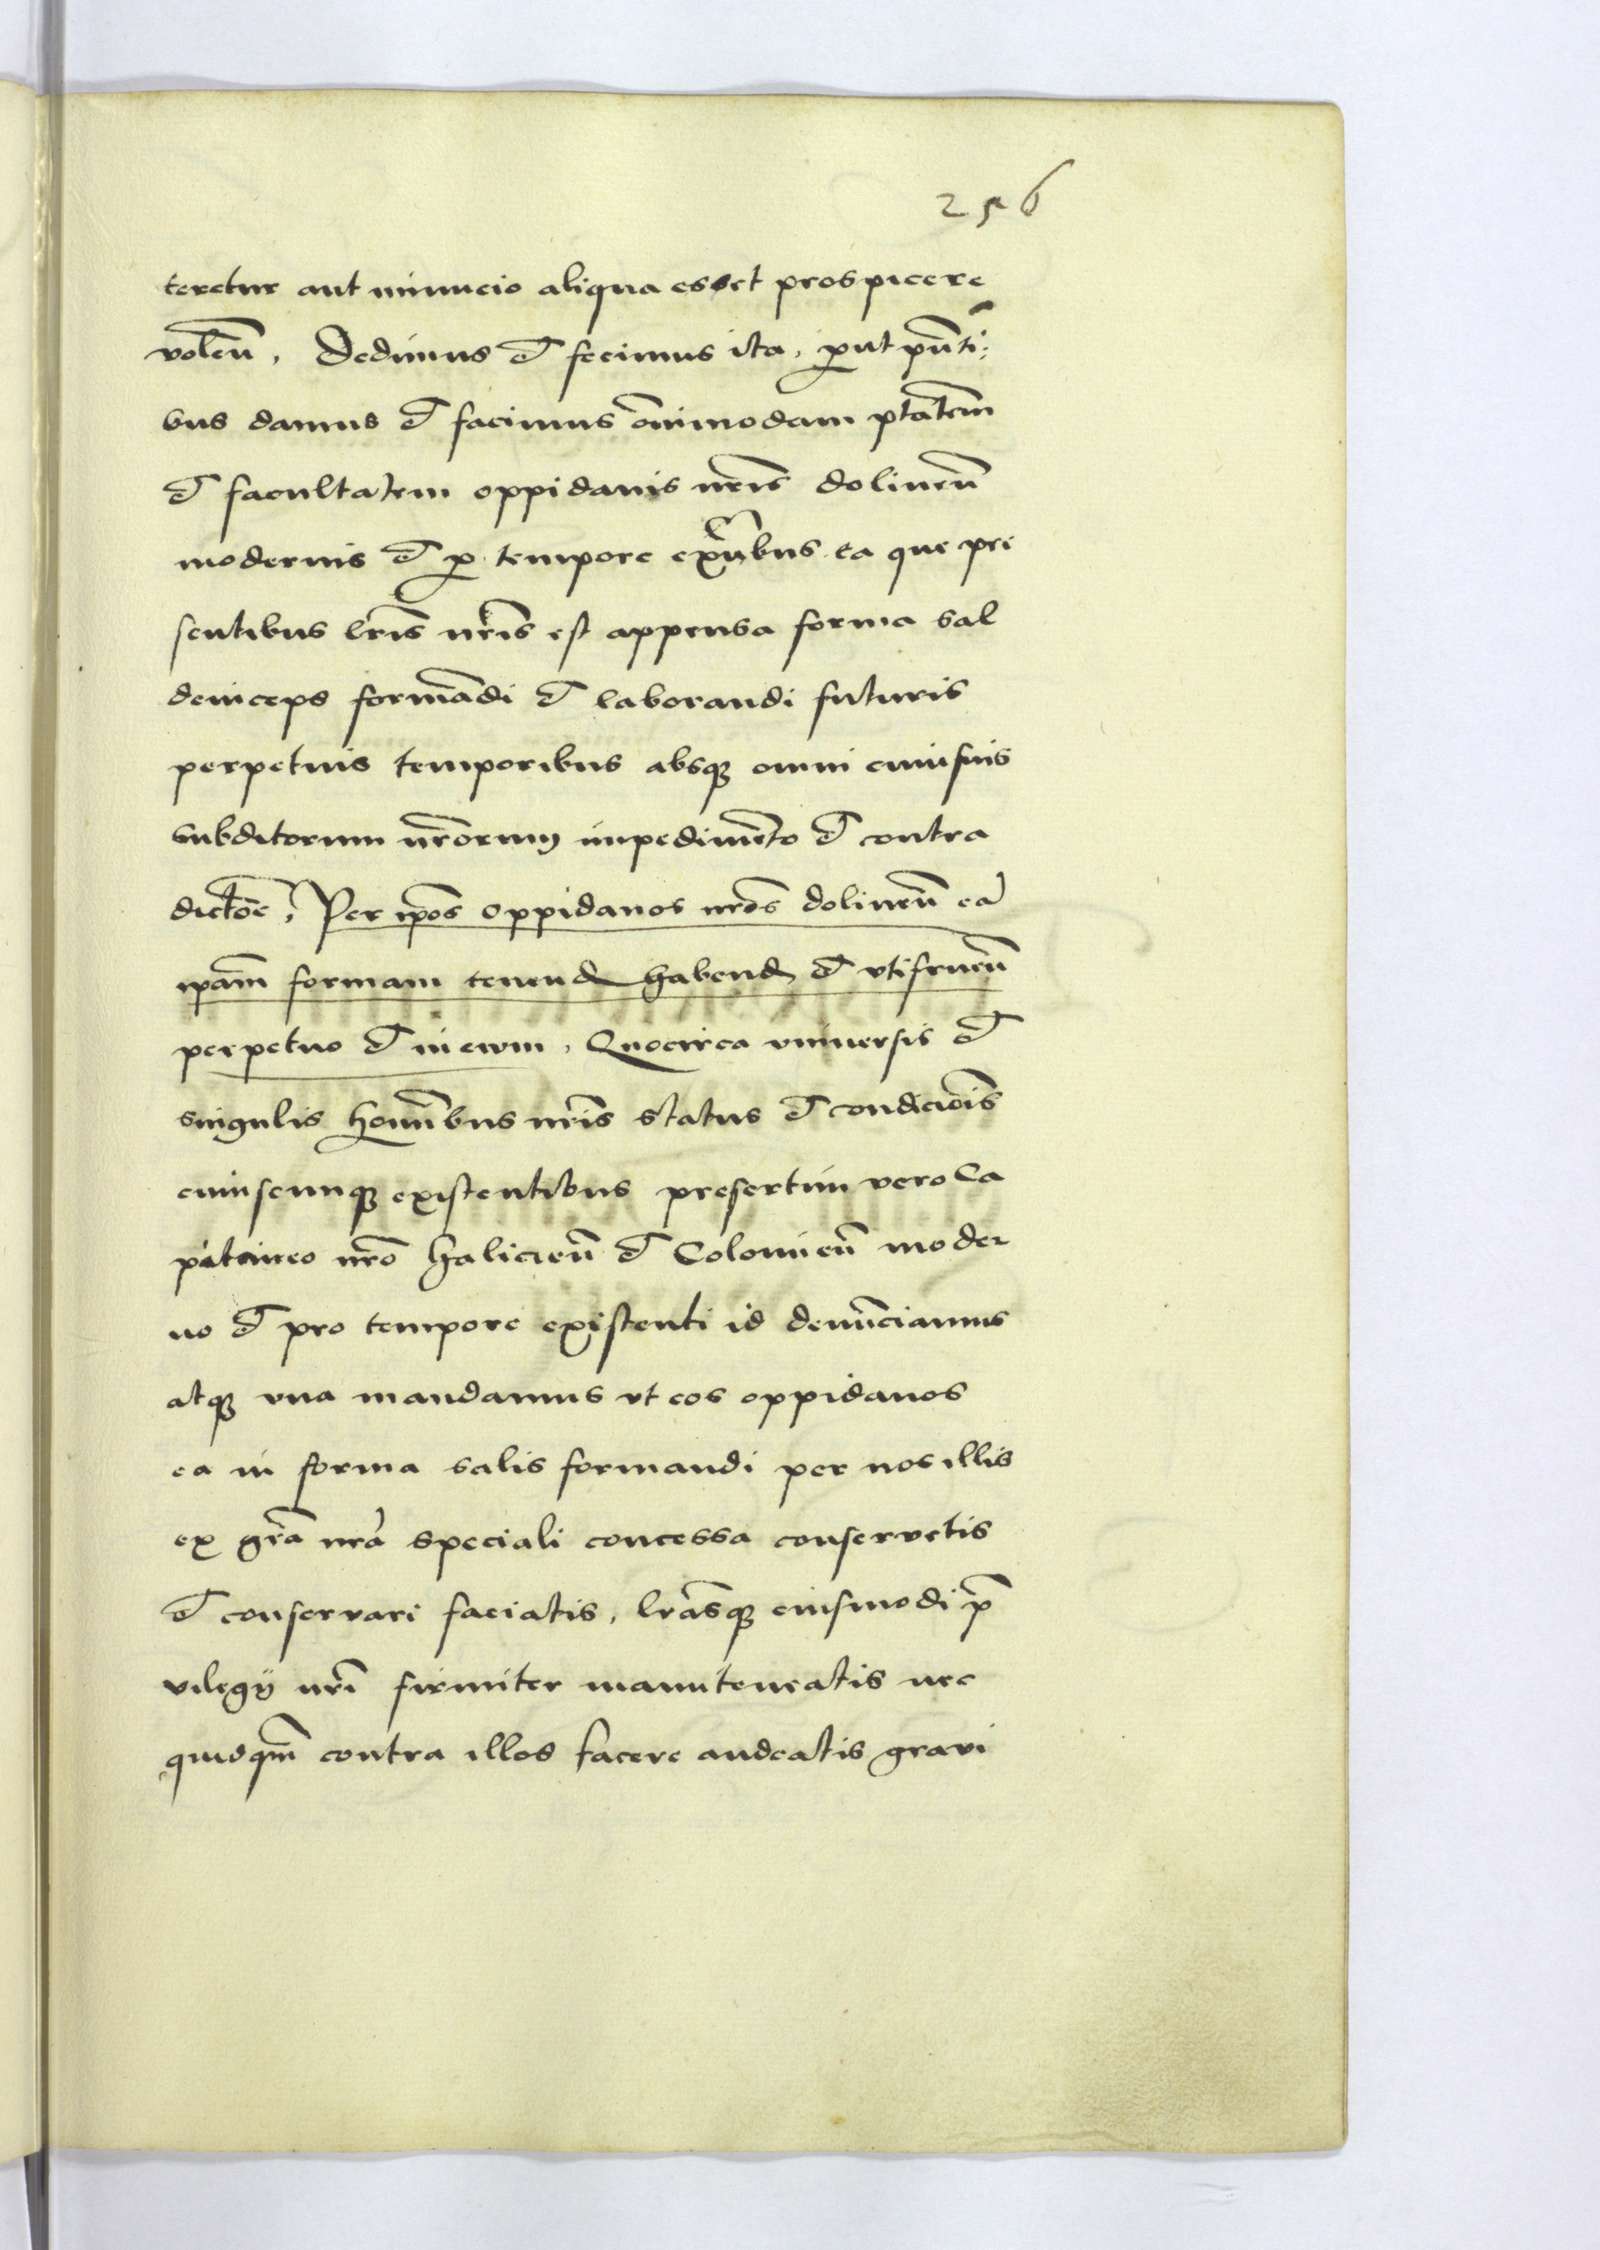 256
teretur aut minucio aliqua esset prospicere
volen̄, Dedimus et fecimus ita, put pn̄ti:
bus damus et facimus om̄imodam ptatem̄
et facultatem oppidanis nr̄is dolinen̄
modernis et p tempore exn̄bus ea que pre
sentibus lr̄is nr̄is est appensa forma sal
deinceps formādi et laborandi futuris
perpetuis temporibus absq omni cuiusuis
subditorum nr̄orum impedimēto et contra
dictōe, Per ip̄os oppidanos nr̄os dolinen̄ eā
ip̄am formam tenend habend et vtifruen̄
perpetuo et in ewm, Quocirca vniuersis et
singulis hom̄ibus nr̄is status et condicōis
cuiuscunq existentibus presertim vero Ca
pitaneo nr̄o halicien̄ et Colomien̄ moder
no et pro tempore existenti id denūciamus
atq vna mandamus vt eos oppidanos
ea in forma salis formandi per nos illis
ex gr̄a nr̄a speciali concessa conseruetis
et conseruari faciatis, lr̄asq eiusmodi p̄
vilegij nr̄i firmiter manuteneatis nec
quidqm̄ contra illos facere audeatis graui